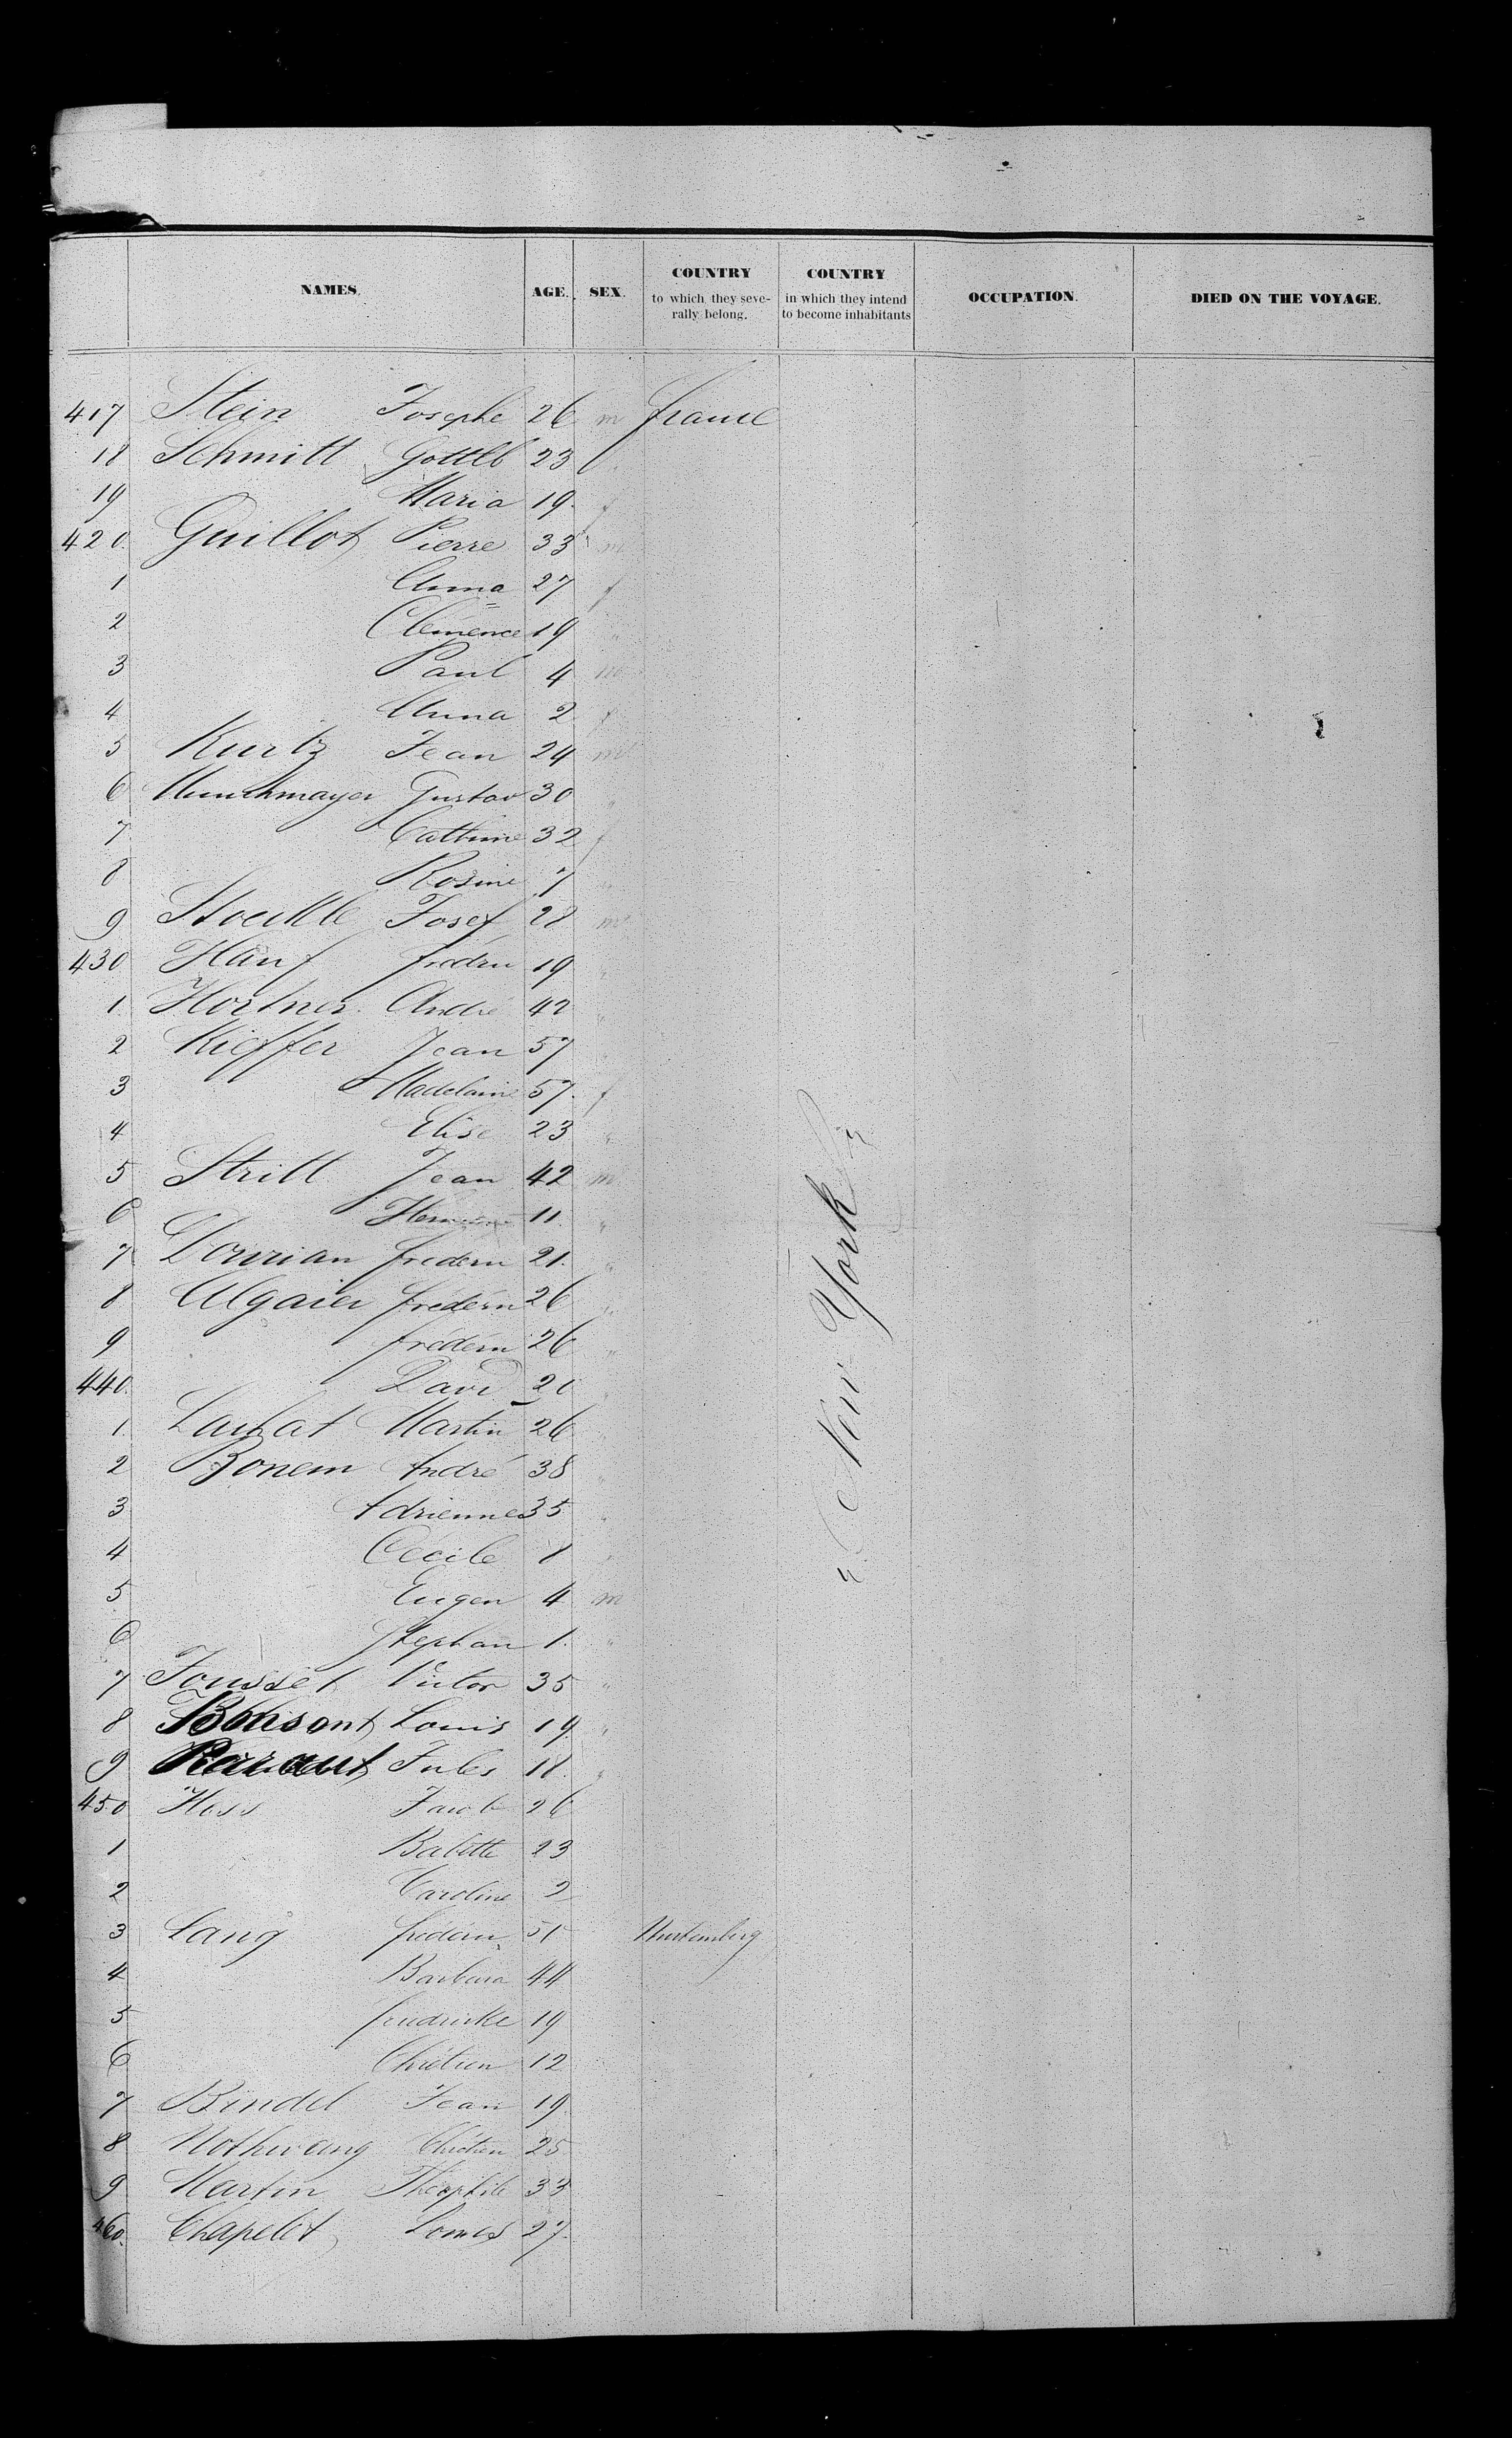 NAMES. AGE. SEX. COUNTRY to which they severally belong. COUNTRY in which they intend to become inhabitants OCCUPATION. DIED ON THE VOYAGE.
417 Stein Josephe 26 m france
18 Schmitt Gottlb 23
19 Maria 19 f
420 Guillot Pierre 33 m
1 Anna 27 f
2 Clémence 19 "
3 Paul 4 m
4 Anna 2 f
5 Kurtz Jean 24 m
6 Munchmayer Gustav 30 "
7 Cathrine 32 f
8 Rosine 7 "
9 Stoeckle Josef 28 m
430 Hauf 19
1 Hortner André 42 "
2 Kieffer Jean 57
3 Madelaine 57 f
4 Elise 23 "
5 Stritt Jean 42 m
6 11 "
7 Dourian frederic 21 "
8 Algaier frederic 26 "
9 frederic 26 "
440 David 20
1 Martin 26
2 Bonem André 38 "
3 Adrienne 35 "
4 Cecile 8
5 Eugen 4 m
6 Stephan 1 "
7 Jousset Victor 35 "
8 Louis 19 "
9 Jules 18 "
450 Hess Jacob 26
1 Babette 23
2 Caroline 2
3 Lang frederic 51 Wurtemberg
4 Barbara 44
5 friedricke 19
6 Chrétien 12
7 Bindel Jean 19
8 Nothwang Chrétien 25
9 Martin Théophile 33
460 Chapelet Louis 27
" New York "